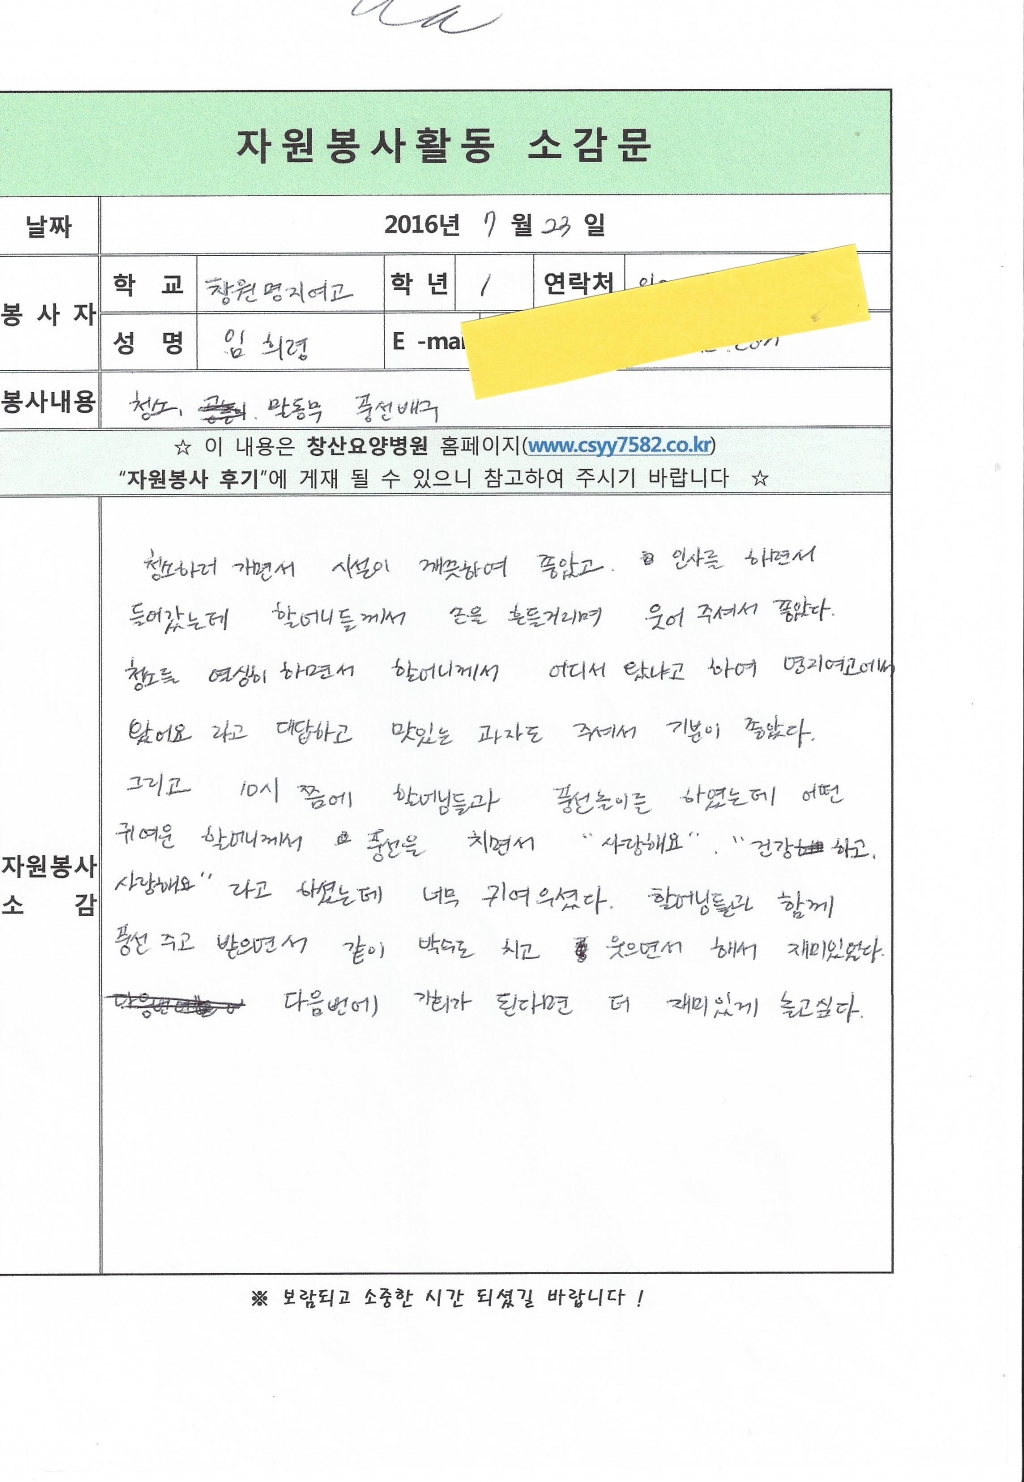 자원봉사활동 소감문
날짜 2016년 7월 23일
봉사자 학교 창원명지여고 학년 1 연락처
성명 임희령 E-mai
봉사내용 청소, 말동무 풍선배구
☆ 이 내용은 창산요양병원 홈페이지(www.csyy7582.co.kr)
“자원봉사 후기”에 게재 될 수 있으니 참고하여 주시기 바랍니다 ☆
자원봉사
소감
청소하러 가면서 시설이 깨끗하여 좋았고. 인사를 하면서
들어갔는데 할머니들께서 손을 흔들거리며 웃어 주셔서 좋았다.
청소를 열심히 하면서 할머니께서 어디서 왔냐고 하여 명지여고에서
왔어요 라고 대답하고 맛있는 과자도 주셔서 기분이 좋았다.
그리고 10시 쯤에 할머님들과 풍선놀이를 하였는데 어떤
귀여운 할머니께서 풍선을 치면서 “사랑해요”. “건강 하고,
사랑해요” 라고 하셨는데 너무 귀여우셨다. 할머님들과 함께
풍선 주고 받으면서 같이 박수도 치고 웃으면서 해서 재미있었다.
다음번에 기회가 된다면 더 재미있게 놀고싶다.
※ 보람되고 소중한 시간 되셨길 바랍니다 !